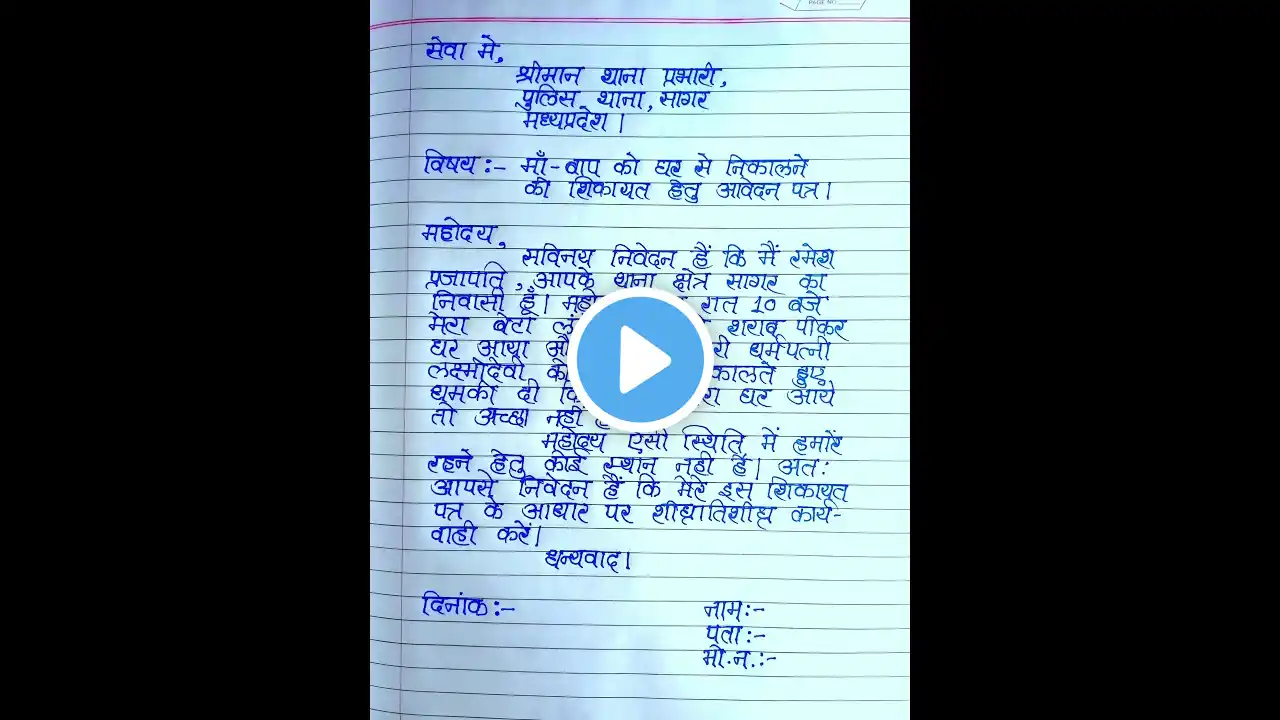 PAGE NO.
सेवा मे,
श्रीमान थाना प्रभारी,
पुलिस थाना, सागर
मध्यप्रदेश।
विषय:- माँ-बाप को घर से निकालने
की शिकायत हेतु आवेदन पत्र।
महोदय,
सविनय निवेदन हैं कि मैं रमेश
प्रजापति, आपके थाना क्षेत्र सागर का
निवासी हूँ। रात 10 बजे
मेरा बेटा शराब पीकर
घर आया धर्मपत्नी
लक्ष्मीदेवी हुए
धमकी दी घर आये
तो अच्छा नहीं
महोदय ऐसी स्थिति में हमारे
रहने हेतु कोई स्थान नही है। अत:
आपसे निवेदन हैं कि मेरे इस शिकायत
पत्र के आधार पर शीघ्रातिशीघ्र कार्य-
वाही करें।
धन्यवाद।
दिनांक:- नाम:-
पता:-
मो.न.:-